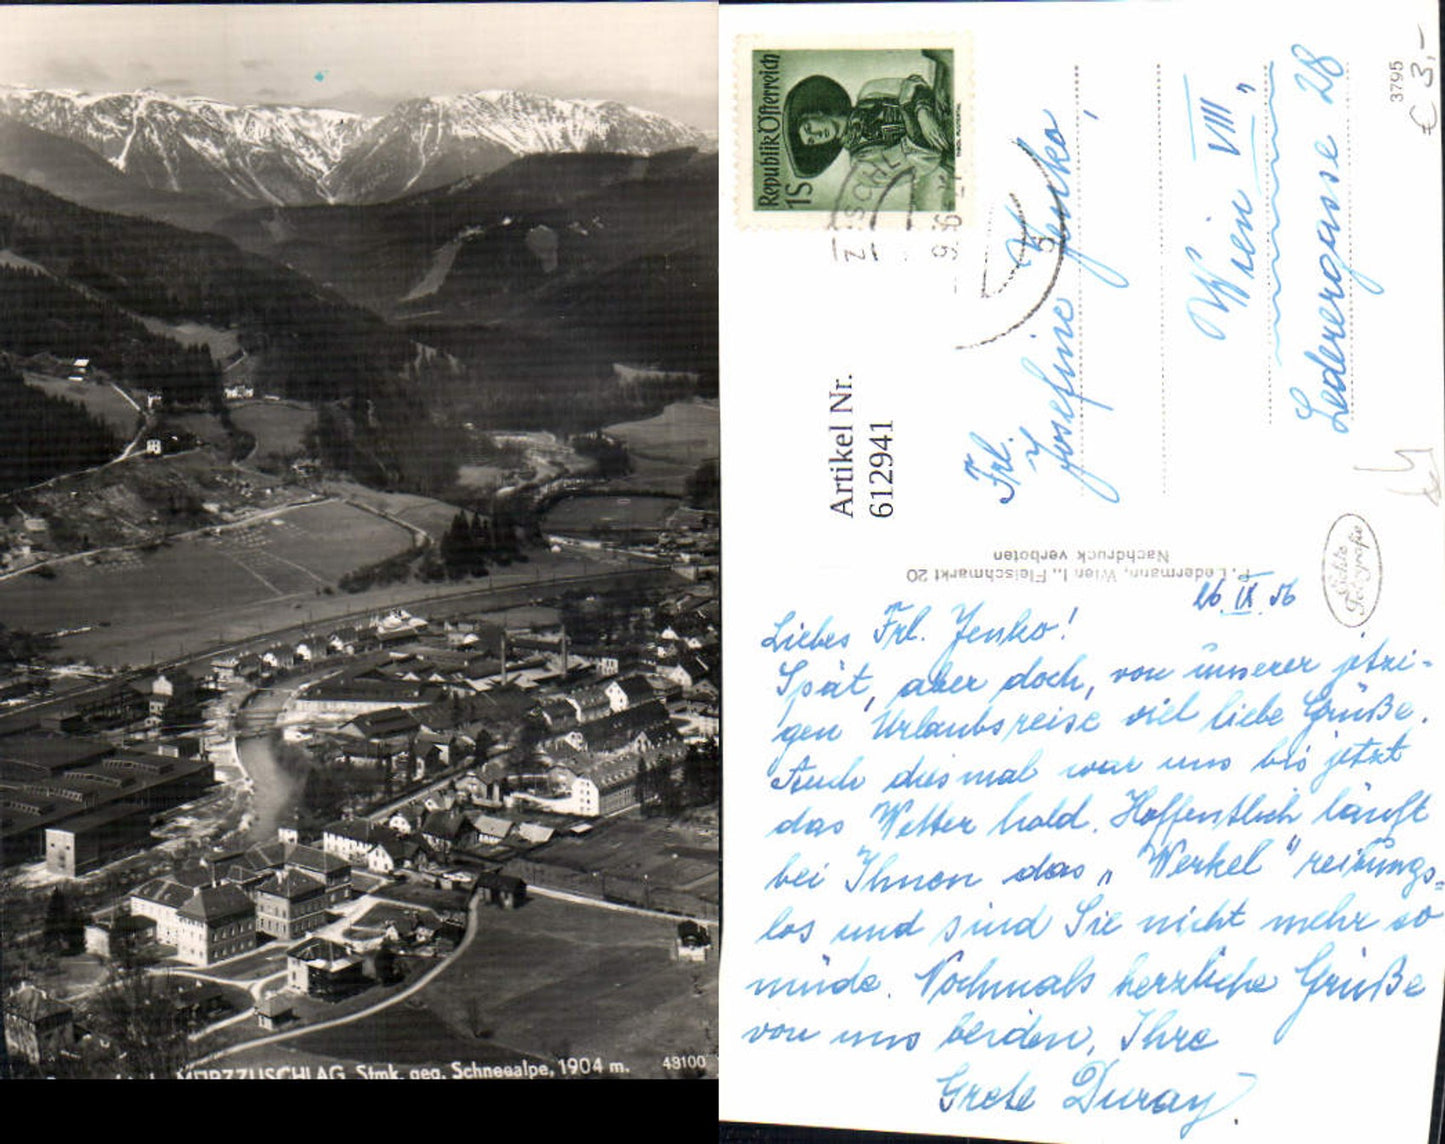 MÜRZZUSCHLAG, Stmk. geg. Schneealpe, 1904 m.
43100
Republik Österreich
1S
Artikel Nr.
612941
3795
€ 3,-
Frl.
Josefine Jenko,
Wien VIII„
Lederergasse 28
P. Ledermann, Wien I., Fleischmarkt 20
Nachdruck verboten
26. IX. 56
Liebes Frl. Jenko!
Spät, aber doch, von unserer jetzi-
gen Urlaubsreise viel liebe Grüße.
Auch diesmal war uns bis jetzt
das Wetter hold. Hoffentlich läuft
bei Ihnen das „Werkel" reibungs=
los und sind Sie nicht mehr so
müde. Nochmals herzliche Grüße
von uns beiden, Ihre
Grete Duray.